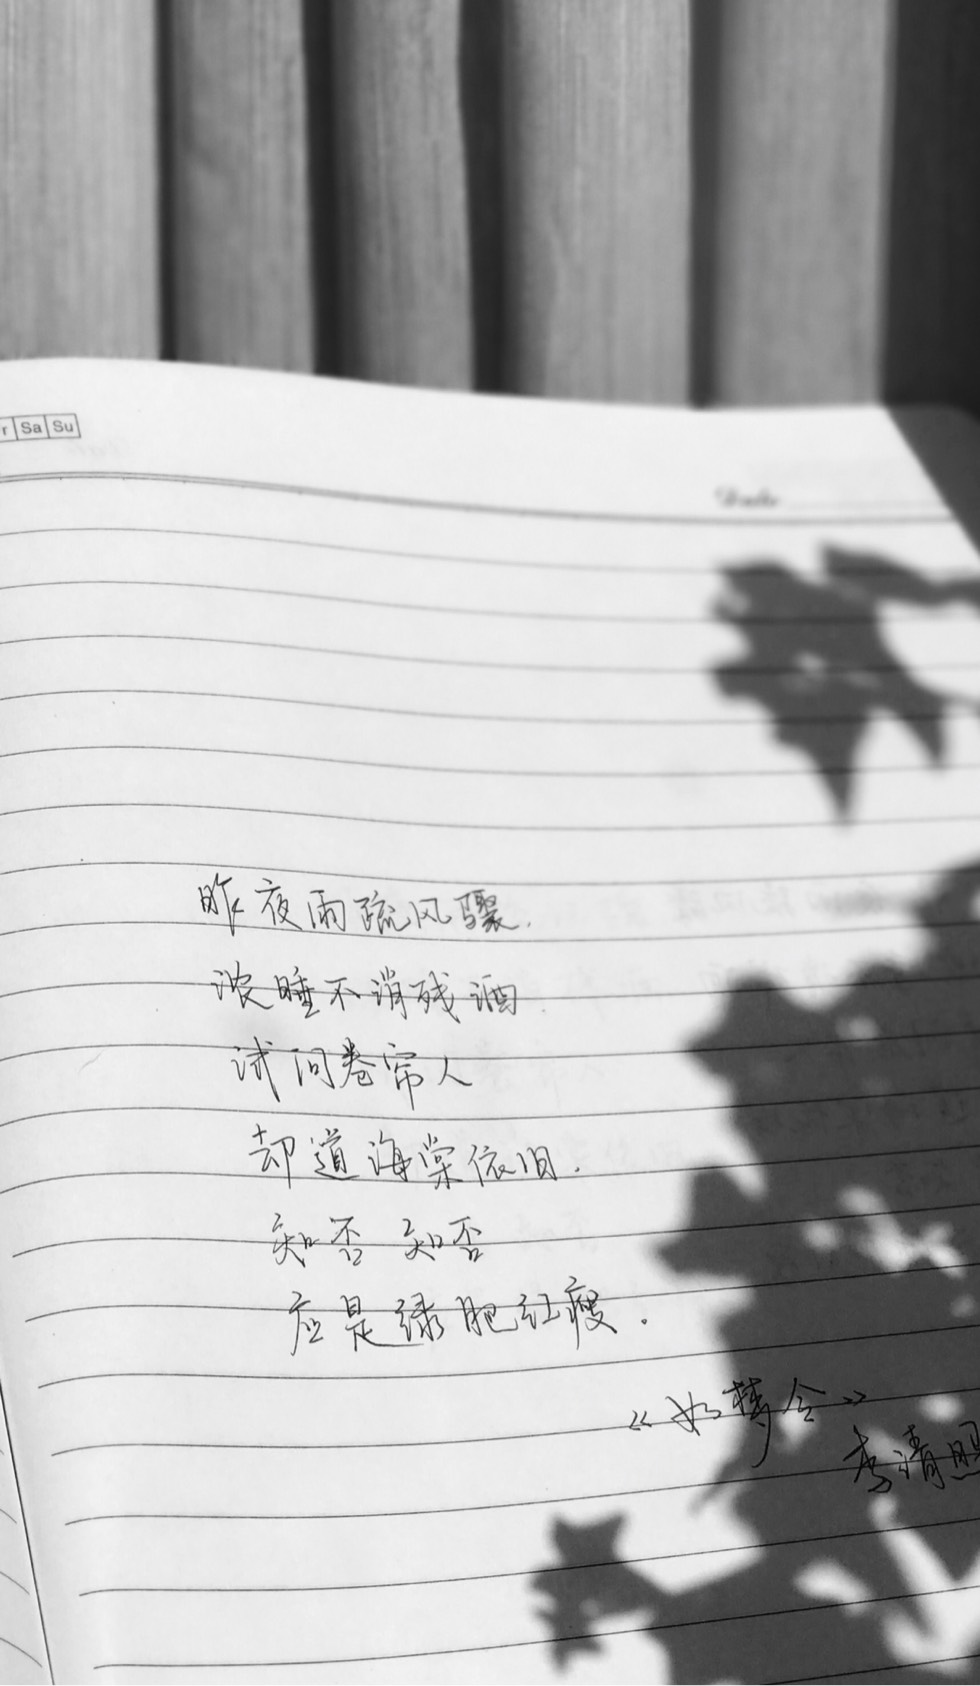 r Sa Su
Date
昨夜雨疏风骤.
浓睡不消残酒.
试问卷帘人
却道海棠依旧.
知否 知否
应是绿肥红瘦.
《如梦令》
李清照